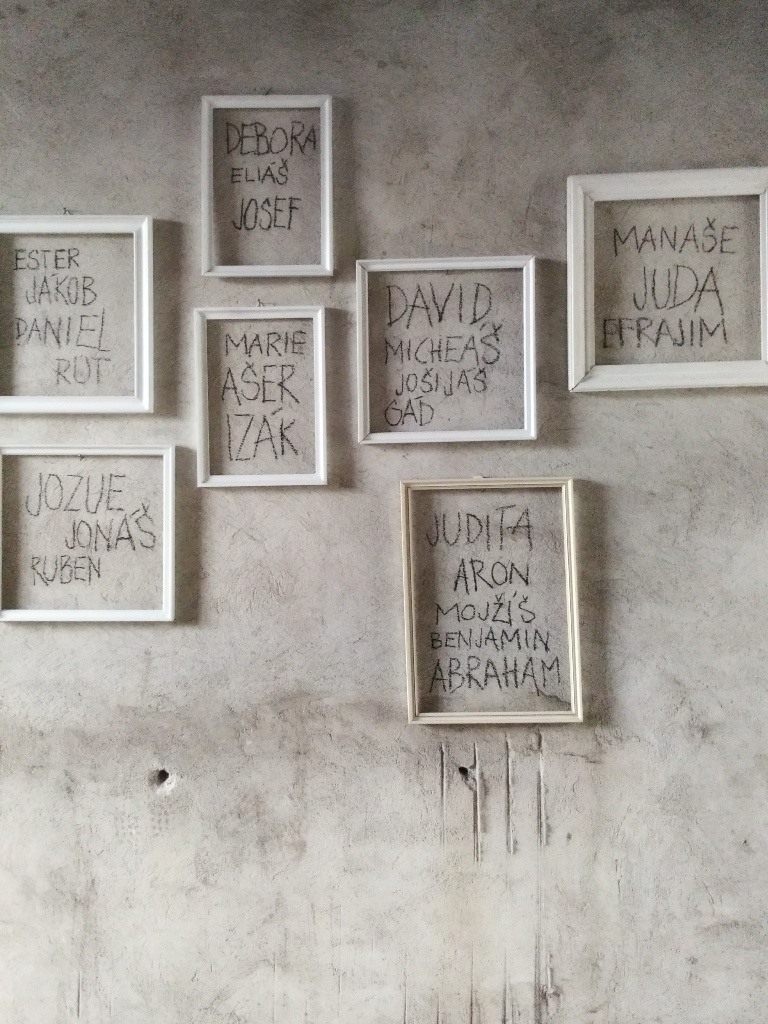 DEBORA
ELIÁŠ
JOSEF
ESTER
JÁKOB
DANIEL
RÚT
MARIE
AŠER
IZÁK
DAVID
MICHEÁŠ
JOŠIJÁŠ
GÁD
MANAŠE
JUDA
EFRAJIM
JOZUE
JONÁŠ
RUBEN
JUDITA
ARON
MOJŽÍŠ
BENJAMIN
ABRAHAM